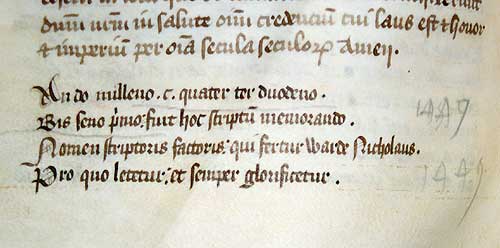 diuinū ueꝝ in salute oīm credenciū cui laus est & honor
& imperiū per oīa secula seculoꝝ Amen.
Anno milleno . c . quater ter duodeno .
Bis seno pͥmo : fuit hoc scriptū memorando .
Nomen scriptoris factoris : qui fertur warde Nicholaus .
Pro quo letetur : et semper glorificetur .
1449
1449